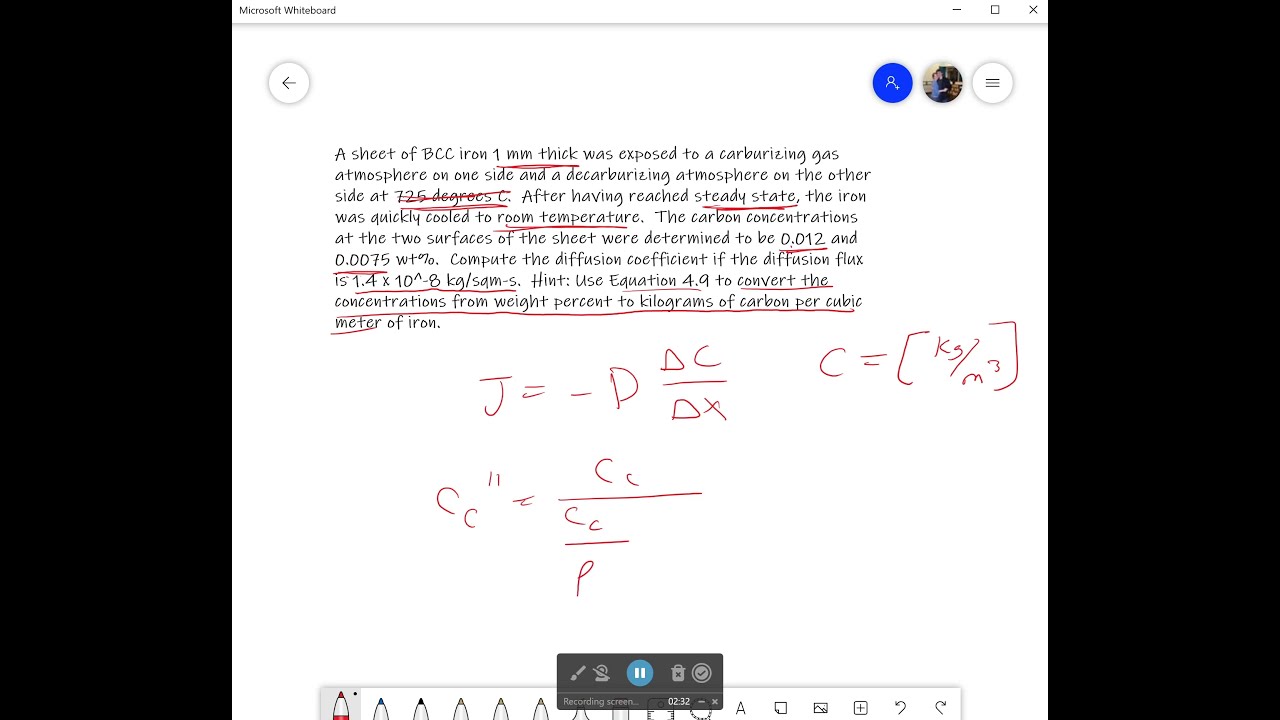 Microsoft Whiteboard
A sheet of BCC iron 1 mm thick was exposed to a carburizing gas
atmosphere on one side and a decarburizing atmosphere on the other
side at 725 degrees C. After having reached steady state, the iron
was quickly cooled to room temperature. The carbon concentrations
at the two surfaces of the sheet were determined to be 0.012 and
0.0075 wt%. Compute the diffusion coefficient if the diffusion flux
is 1.4 x 10^-8 kg/sqm-s. Hint: Use Equation 4.9 to convert the
concentrations from weight percent to kilograms of carbon per cubic
meter of iron.
J = - D ΔC / ΔX
C = [kg/m³]
C_C'' = C_C / (C_C / ρ)
Recording screen... 02:32
A